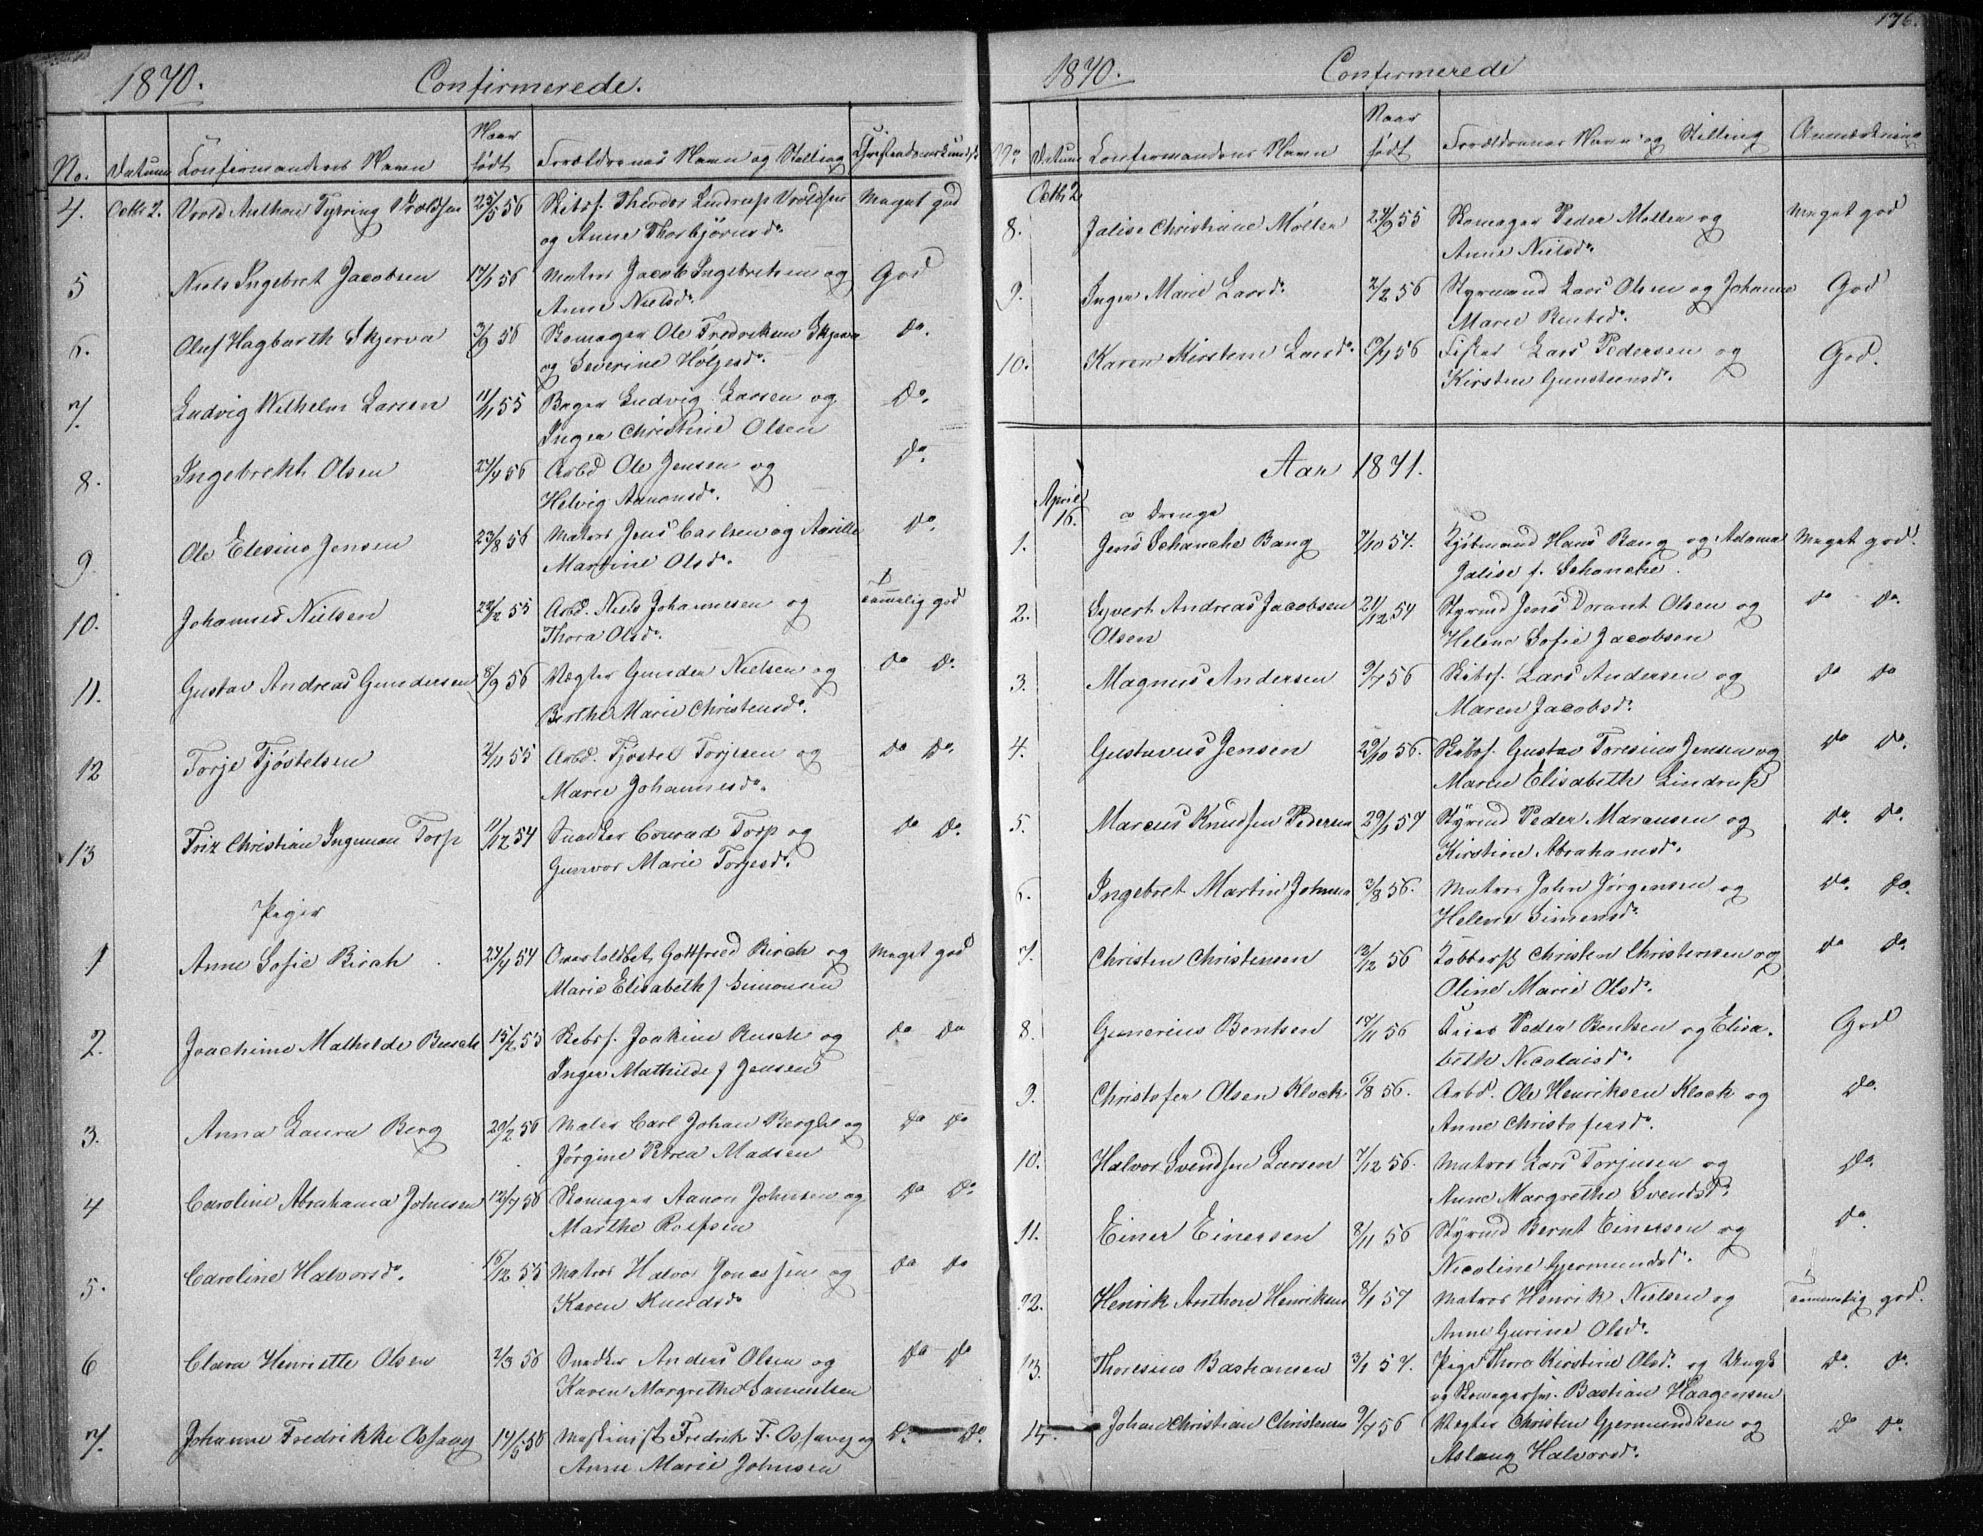 1870. Confirmerede.
No. Datum Confirmandens Navn Naar født Forældrenes Navn og Stilling Christendomskundsk
4. Octb 2. Vrold Anthon Tybring Vroldsen 25/5 56 Skibsf. Theodor Lindrup Vroldsen Meget god
og Anne Thorbjørnsd.
5 Niels Ingebret Jacobsen 17/1 56 Matros Jacob Ingebretsen og God
Anne Nielsd.
6. Oluf Hagbarth Skjerva 3/9 56 Skomager Ole Fredriksen Skjerva Do.
og Severine Holjesd.
7. Ludvig Wilhelm Larsen 11/11 55 Bager Ludvig Larsen og Do.
Inger Christine Olsen
8. Ingebrekt Olsen 24/4 56 Arbd Ole Jensen og Do.
Helvig Aanonsd.
9. Ole Elesius Jensen 23/8 56 Matros Jens Carlsen og Aasille Do.
Martine Olsd.
10. Johannes Nielsen 23/12 55 Arbd. Niels Johannesen og temmelig god
Thora Olsd.
11. Gustav Andreas Gundersen 8/9 56 Vægter Gunder Nielsen og Do Do.
Berthe Marie Christensd.
12 Torje Tjøstelsen 2/11 55 Arbd. Tjøstel Torjesen og Do Do.
Marie Johannesd.
13 Friz Christian Ingeman Torp 11/12 54 Snedker Conrad Torp og Do Do.
Gunvor Marie Torjesd.
Piger
1 Anne Sofie Birch 24/4 54 Overtoldbet. Gottfried Birch og Meget god
Marie Elisabeth f Simonsen
2. Joachime Mathilde Busch 15/2 55 Skibsf. Joakim Busch og Do Do
Inger Mathilde f Jensen
3. Anna Laura Berg 20/2 56 Maler Carl Johan Bergh og Do Do
Jørgine Petrea Madsen
4 Caroline Abrahama Johnsen 12/7 56 Skomager Aanon Johnsen og Do Do.
Marthe Rolfsen
5. Caroline Halvorsd. 16/12 55 Matros Halvor Jonassen og Do Do
Karen Knudsd
6 Clara Henriette Olsen 2/3 56 Snedker Anders Olsen og Do Do
Karen Margrethe Samuelsen
7. Johanne Fredrikke Ossavg 14/5 56 Maskinist Fredrik F. Ossavg og Do. Do.
Anne Marie Johnsen
176.
1870. Confirmerede
No Datum Confirmandens Navn Naar født Forældrenes Navn og Stilling Anmærkning
Octb 2
8. Jalise Christiane Møller 24/9 55 Skomager Peder Møller og Meget god
Anne Nielsd.
9. Inger Marie Larsd. 2/2 56 Styrmand Lars Olsen og Johanne God
Marie Bentsd.
10. Karen Kirstene Larsd. 6/4 56 Fisker Lars Pedersen og God.
Kirsten Gunstensd.
Aar 1871.
April 16. a Drenge
1. Jens Schanche Bang 7/10 54. Kjøbmand Hans Bang og Adama Meget god.
Jalise f. Schanche.
2. Syvert Andreas Jacobsen 21/12 54 Styrmd Jens Dorant Olsen og Do Do.
Olsen Helene Sofie Jacobsen
3. Magnus Andersen 9/7 56 Skibsf. Lars Andersen og Do Do
Maren Jacobsd.
4. Gustavus Jensen 29/10 56. Skibsf. Gustav Toresius Jensen og Do Do.
Maren Elisabeth Lindrup
5. Marcus Knudsen Pedersen 29/1 57 Styrmd Peder Marcusen og Do. Do.
Kirstine Abrahamsd.
6. Ingebret Martin Johnsen 3/8 56. Matros John Jørgensen og Do. Do.
Helene Simonsd.
7. Christen Christensen 13/12 56 Kobbersl. Christen Christensen og Do Do.
Oline Marie Olsd.
8. Gunerius Bentsen 17/11 56 Peder Bentsen og Elisa- God
beth Nicolaisd.
9. Christofer Olsen Klock 7/8 56. Arbd. Ole Henriksen Klock og Do.
Anne Christofersd.
10. Halvor Svendsen Larsen 7/12 56. Matros Lars Torjusen og Do.
Anne Margrethe Svendsd.
11. Einer Einersen 8/11 56 Styrmd Bernt Einersen og Do
Nicoline Gjermundsd.
12. Henrik Anthon Henriksen 8/1 57 Matros Henrik Nielsen og temmelig god.
Anne Gurine Olsd.
13. Thoresius Bastiansen 3/1 57. Pige Thora Kirstine Olsd. og Ungk Do. Do.
og Skomagersv. Bastian Haagensen
14. Johan Christian Christensen 9/7 56 Vægter Christen Gjermundsen og Do Do.
Aslaug Halvorsd.